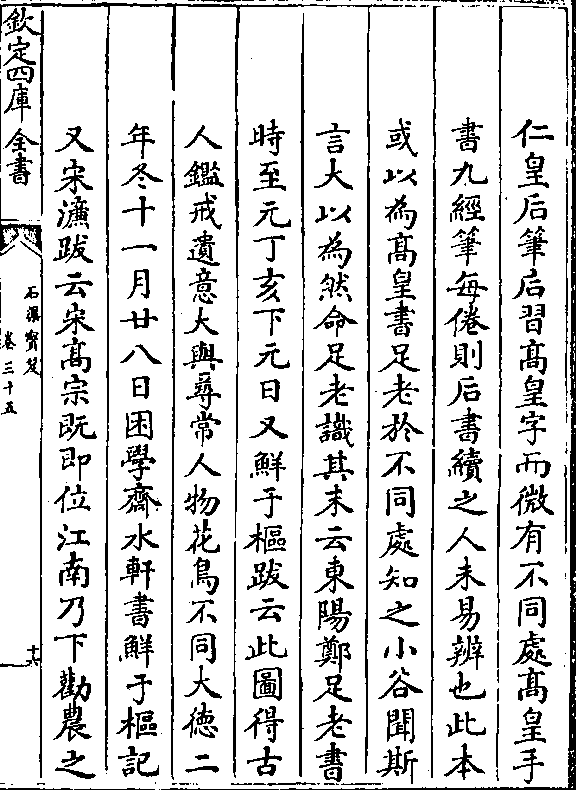 仁皇后筆后習髙皇字而微有不同處髙皇手
書九經筆每倦則后書續之人未易辨也此本
或以為髙皇書足老於不同處知之小谷聞斯
言大以為然命足老識其末云東陽鄭足老書
時至元丁亥下元日又鮮于樞跋云此圖得古
人鑑戒遺意大與尋常人物花鳥不同大徳二
年冬十一月廿八日困學齋水軒書鮮于樞記
又宋濂跋云宋髙宗既即位江南乃下勸農之
欽定四庫全書
石渠寳笈
卷三十五
十六